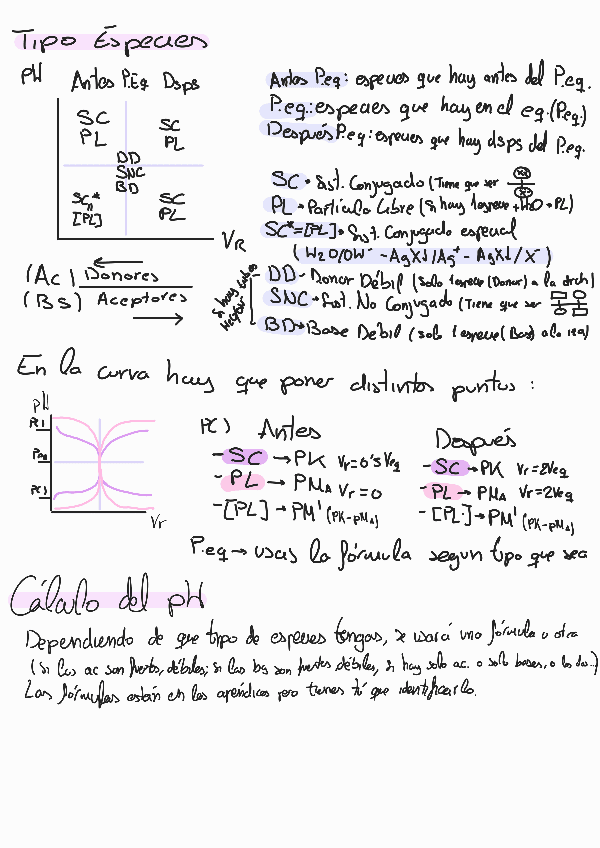 Tipo Especies
pH Antes P.Eq Dsps
SC SC
PL PL
DD
SNC
BD
SCn* SC
[PL] PL
VR
(Ac) Donores
(Bs) Aceptores
Antes P.eq: especies que hay antes del P.eq.
P.eq.: especies que hay en el eq. (P.eq.)
Después P.eq: especies que hay dsps del P.eq.
SC → Sist. Conjugado (Tiene que ser
PL → Partícula Libre (Si hay 1 especie + H2O → PL)
SC* = [PL] → Sist. Conjugado especial
(H2O/OH- - AgX↓/Ag+ - AgX↓/X-)
Si hay
DD → Donor Débil (solo 1 especie (Donor) a la drch)
SNC → Sist. No Conjugado (Tiene que ser
BD → Base Débil (solo 1 especie (Base) a la izq)
En la curva hay que poner distintos puntos:
pH
Vr
PC) Antes
- SC → PK Vr=0'5 Veq
- PL → PMA Vr=0
- [PL] → PM' (PK-pMA)
Después
- SC → PK Vr=2Veq
- PL → PMA Vr=2Veq
- [PL] → PM' (PK-pMA)
P.eq → usas la fórmula segun tipo que sea
Cálculo del pH
Dependiendo de que tipo de especies tengas, se usará una fórmula u otra
(si los ac son fuertes, débiles; si las bs son fuertes débiles, si hay solo ac. o solo bases, o los dos..)
Las fórmulas están en los apéndices pero tienes tú que identificarlo.